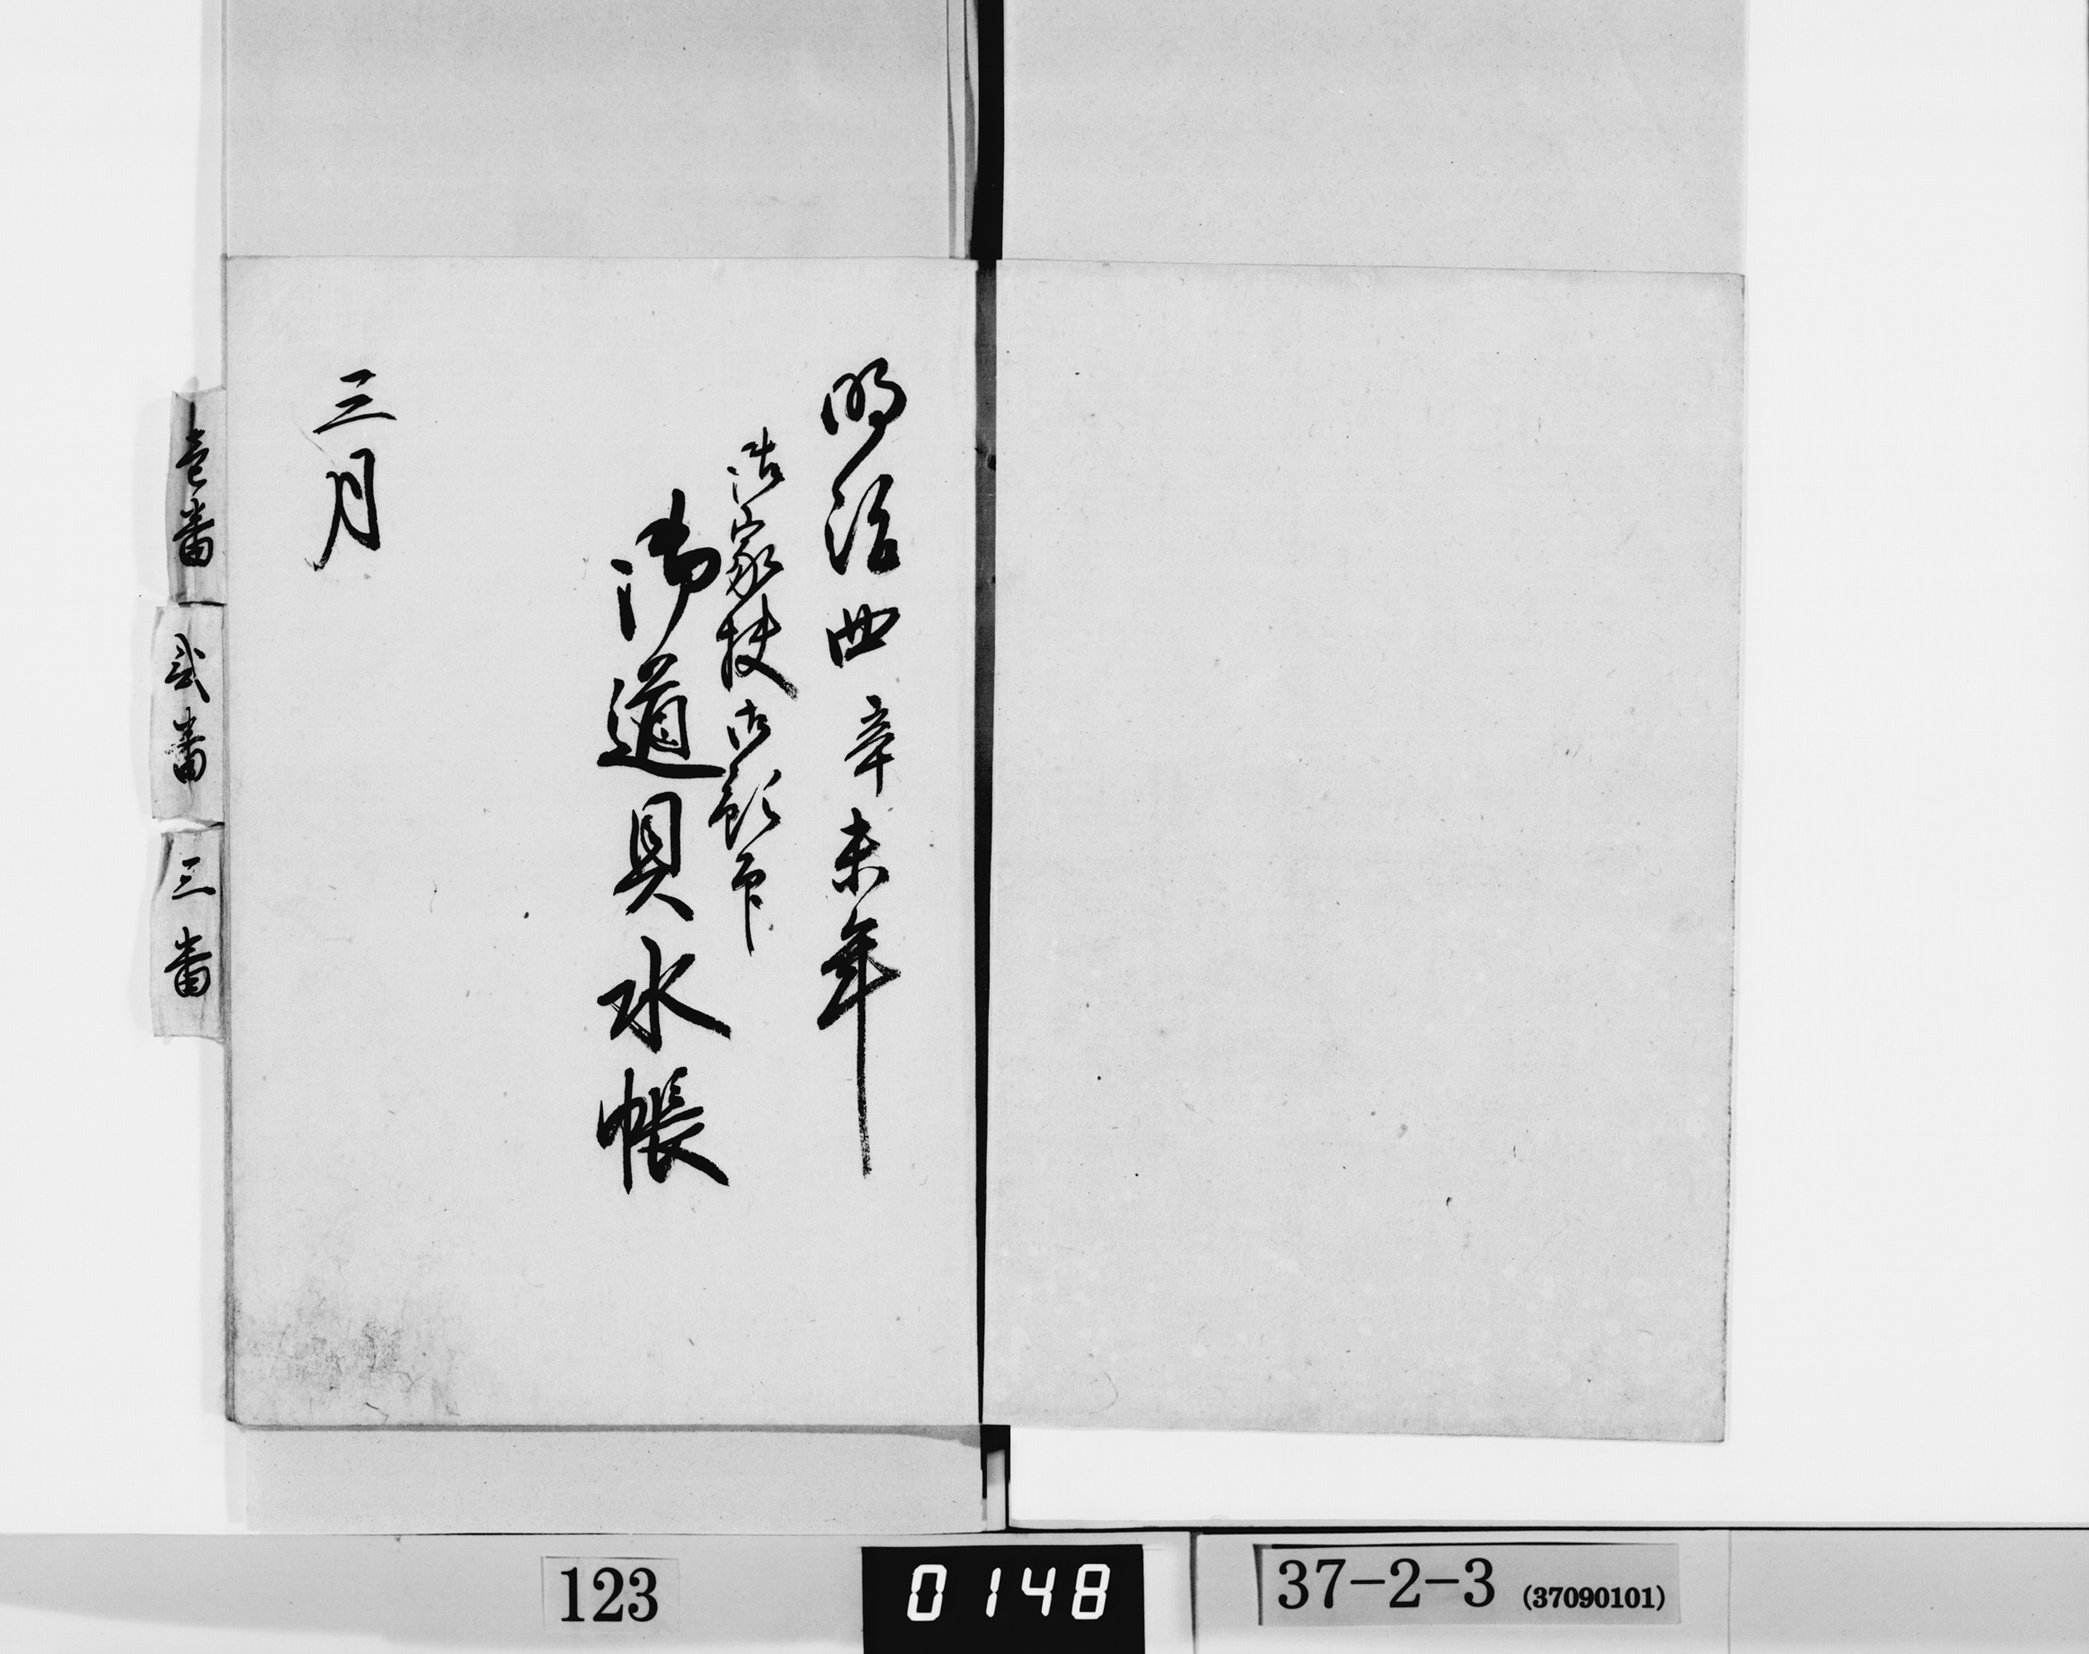 明治四辛未年
御家扶御預印
御道具水帳
三月
壱番
弐番
三番
123
0148
37-2-3 (37090101)